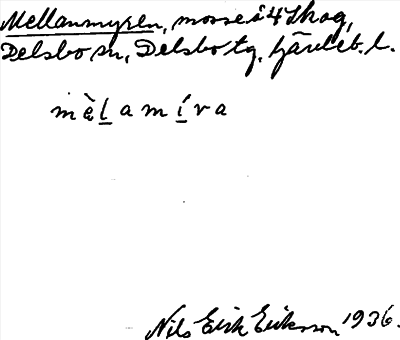 Mellanmyren, mosse i 4 Skog,
Delsbo sn, Delsbo tg, Gävleb. l.
mèlamíva
Nils Erik Eriksson 1936.